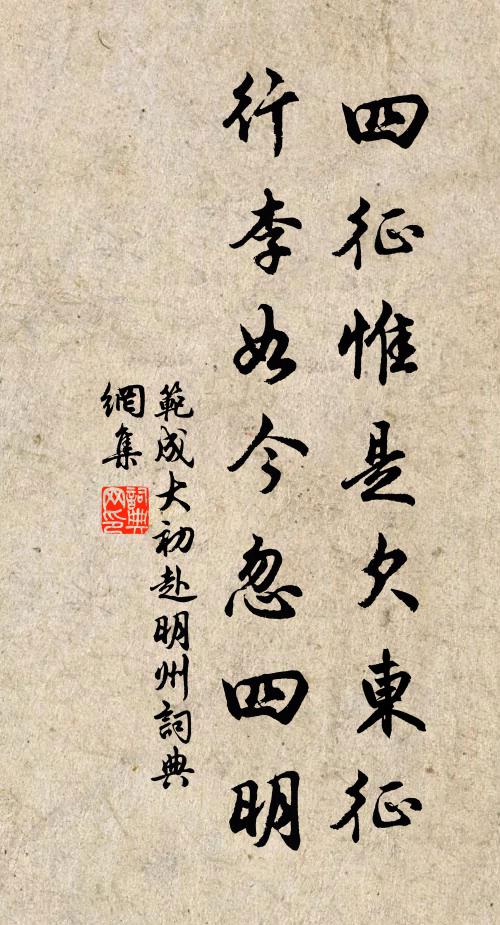 四征惟是欠東征
行李如今忽四明
範成大初赴明州詞典
網集
詞典
网印